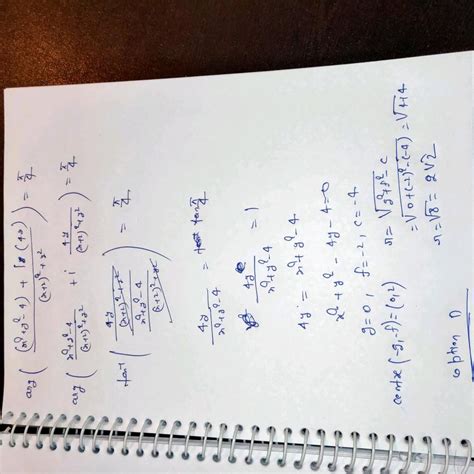 arg ( (x²+y²-4) + i(4y) / (x+2)²+y² ) = π/4
arg ( x²+y²-4 / (x+2)²+y² + i 4y / (x+2)²+y² ) = π/4
tan⁻¹ ( 4y / (x+2)²+y² / x²+y²-4 / (x+2)²+y² ) = π/4
4y / x²+y²-4 = tan π/4
4y / x²+y²-4 = 1
4y = x²+y²-4
x²+y²-4y-4=0
g=0, f=-2, c=-4
centre (-g,-f) = (0,2)
r = √g²+f²-c
= √0+(-2)²-(-4) = √4+4
r = √8 = 2√2
option D